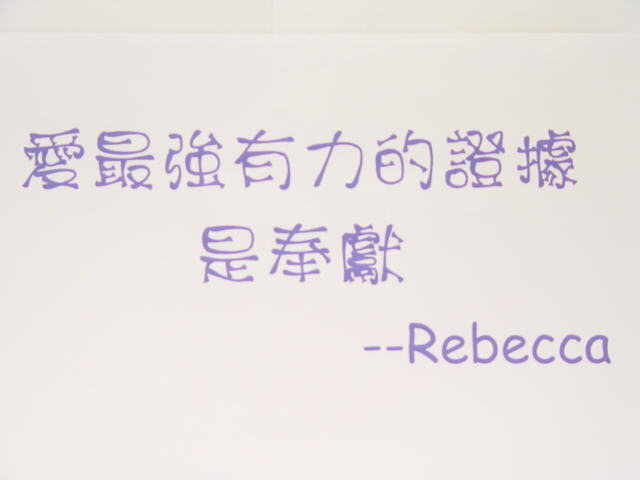 愛最強有力的證據
是奉獻
--Rebecca